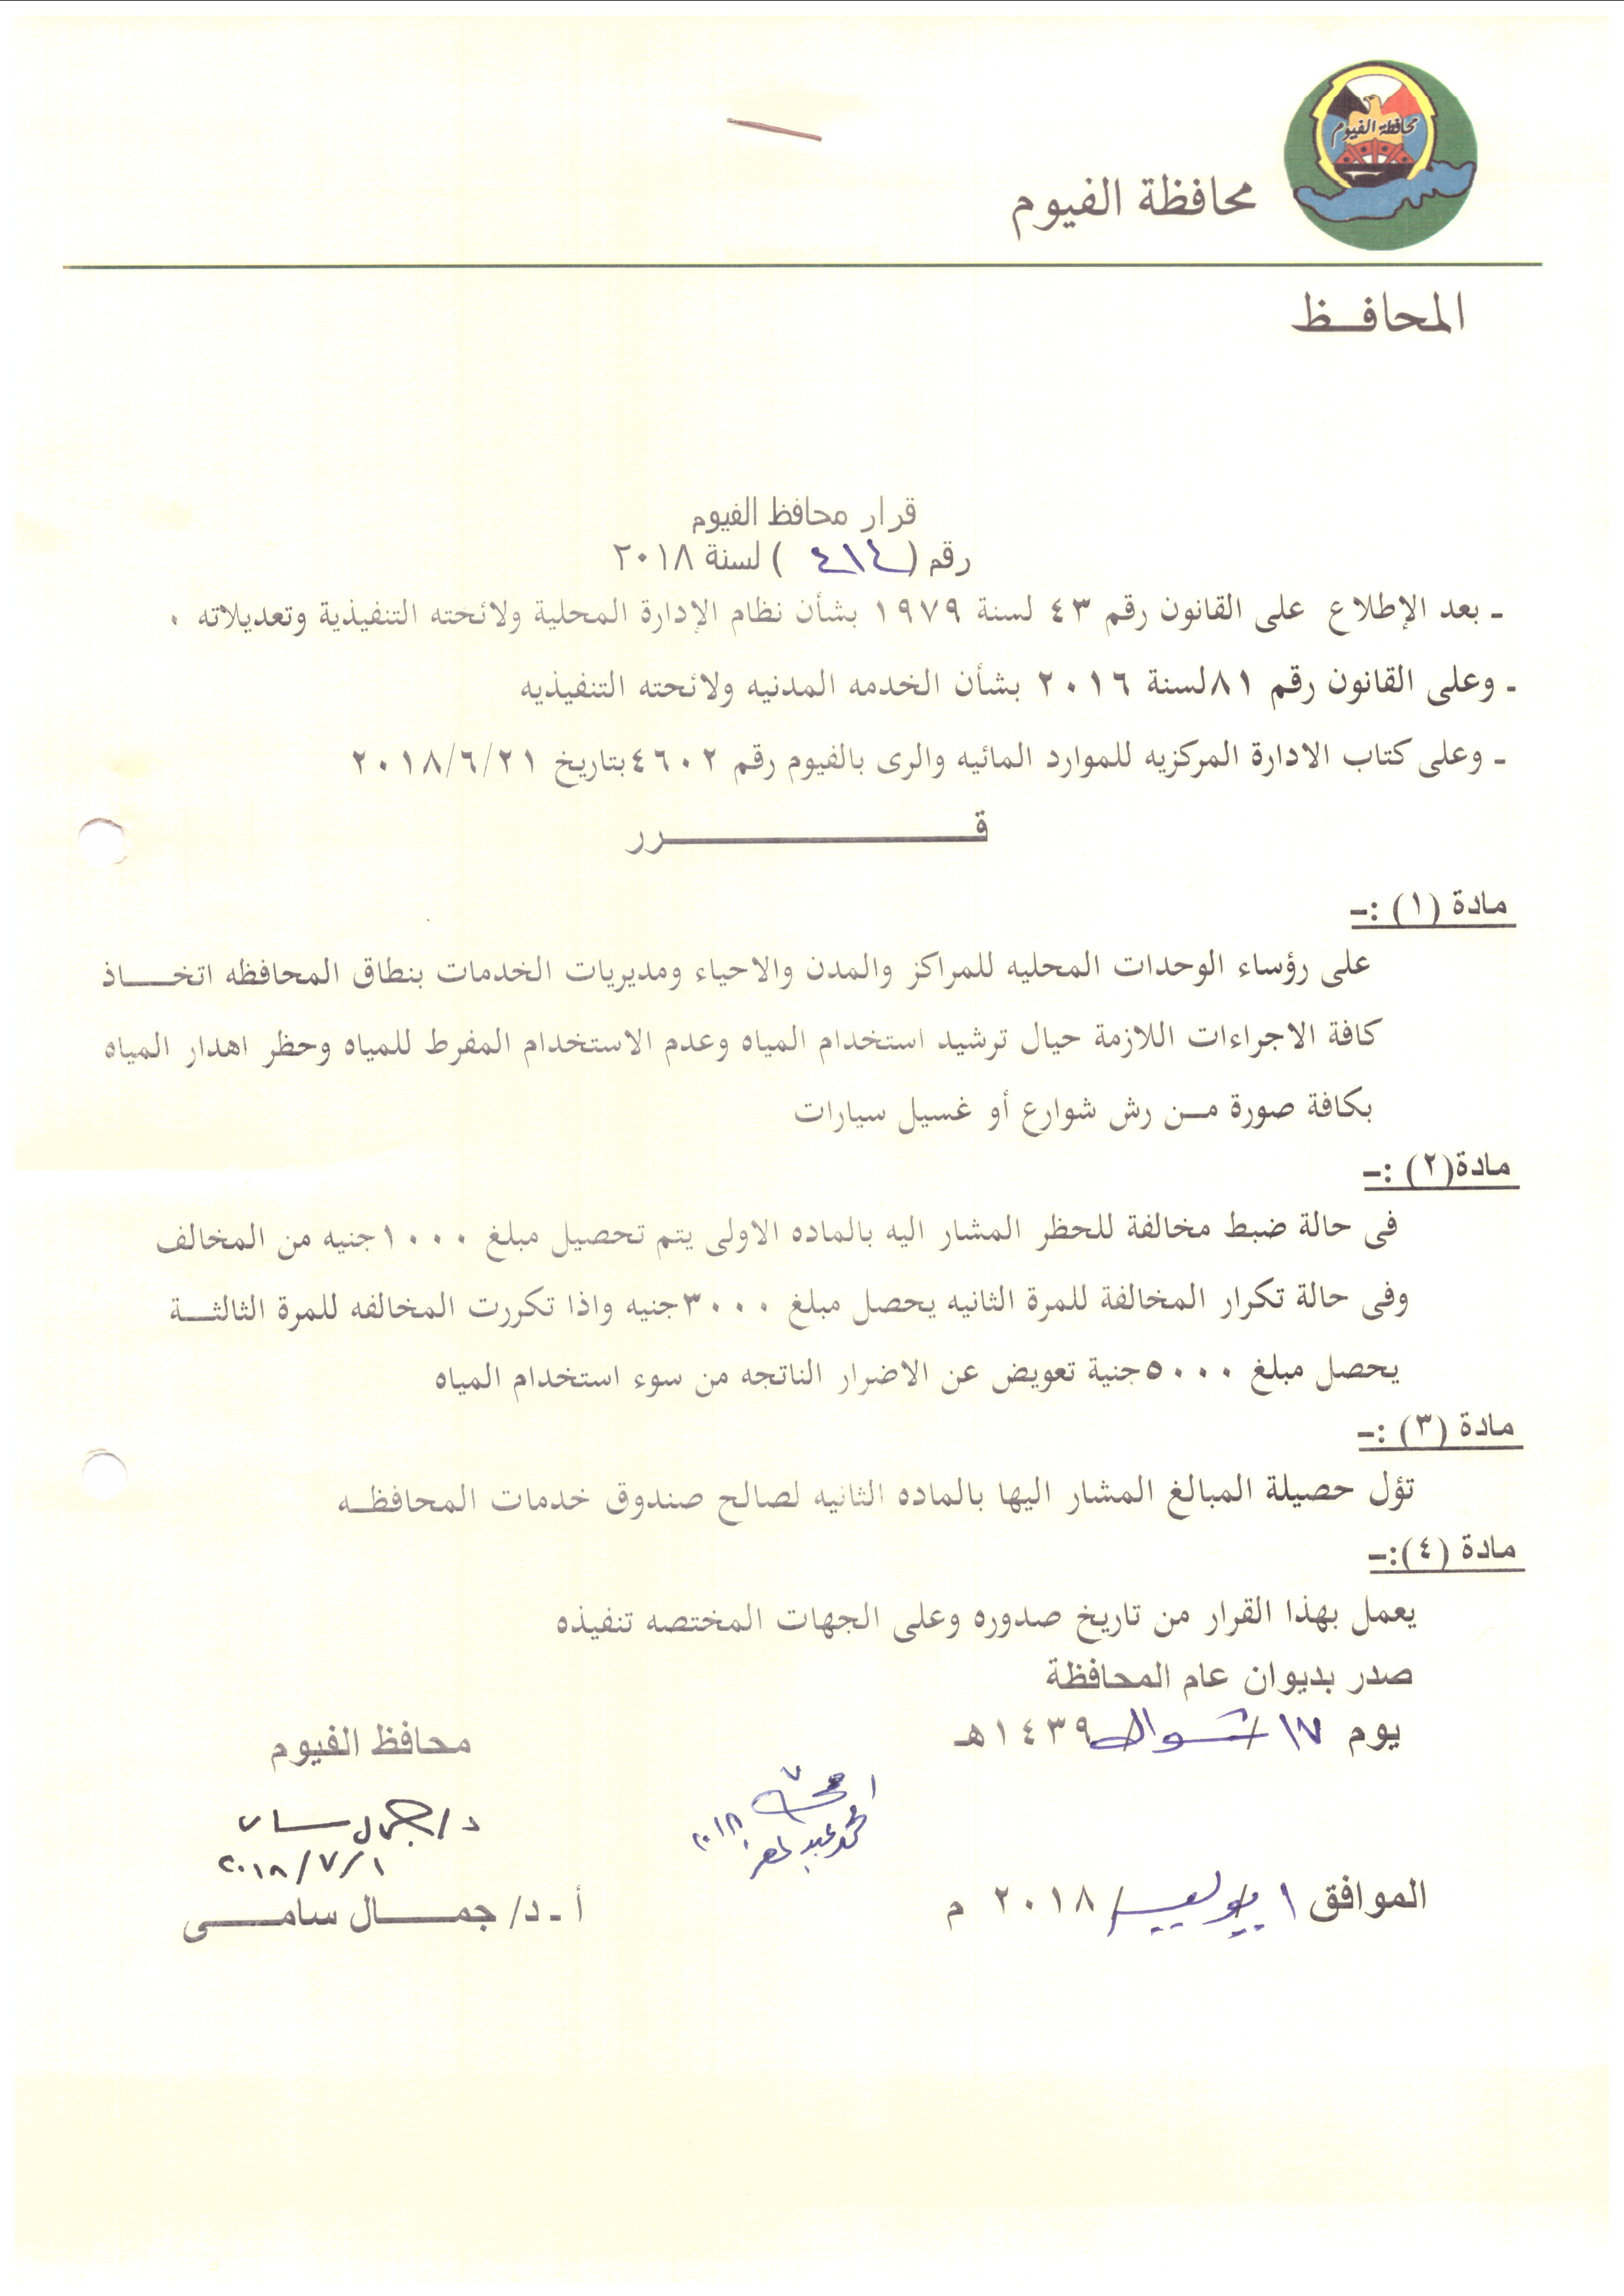 محافظة الفيوم
محافظة الفيوم
المحافــظ
قرار محافظ الفيوم
رقم ( ٤١٤ ) لسنة ٢٠١٨
ـ بعد الإطلاع على القانون رقم ٤٣ لسنة ١٩٧٩ بشأن نظام الإدارة المحلية ولائحته التنفيذية وتعديلاته .
ـ وعلى القانون رقم ٨١لسنة ٢٠١٦ بشأن الخدمه المدنيه ولائحته التنفيذيه
ـ وعلى كتاب الادارة المركزيه للموارد المائيه والرى بالفيوم رقم ٤٦٠٢بتاريخ ٢٠١٨/٦/٢١
قــــــــــــــــــرر
مادة (١) :ـ
على رؤساء الوحدات المحليه للمراكز والمدن والاحياء ومديريات الخدمات بنطاق المحافظه اتخـــاذ
كافة الاجراءات اللازمة حيال ترشيد استخدام المياه وعدم الاستخدام المفرط للمياه وحظر اهدار المياه
بكافة صورة مــن رش شوارع أو غسيل سيارات
مادة(٢) :ـ
فى حالة ضبط مخالفة للحظر المشار اليه بالماده الاولى يتم تحصيل مبلغ ١٠٠٠جنيه من المخالف
وفى حالة تكرار المخالفة للمرة الثانيه يحصل مبلغ ٣٠٠٠جنيه واذا تكررت المخالفه للمرة الثالثــة
يحصل مبلغ ٥٠٠٠جنية تعويض عن الاضرار الناتجه من سوء استخدام المياه
مادة (٣) :ـ
تؤل حصيلة المبالغ المشار اليها بالماده الثانيه لصالح صندوق خدمات المحافظــه
مادة (٤):ـ
يعمل بهذا القرار من تاريخ صدوره وعلى الجهات المختصه تنفيذه
صدر بديوان عام المحافظة
يوم ١٧ شوال ١٤٣٩هـ
محافظ الفيوم
د/ جمال سامى
٢٠١٨/٧/١
الموافق ١/ يوليو/ ٢٠١٨ م
أ ـ د/ جمـــال سامــــى